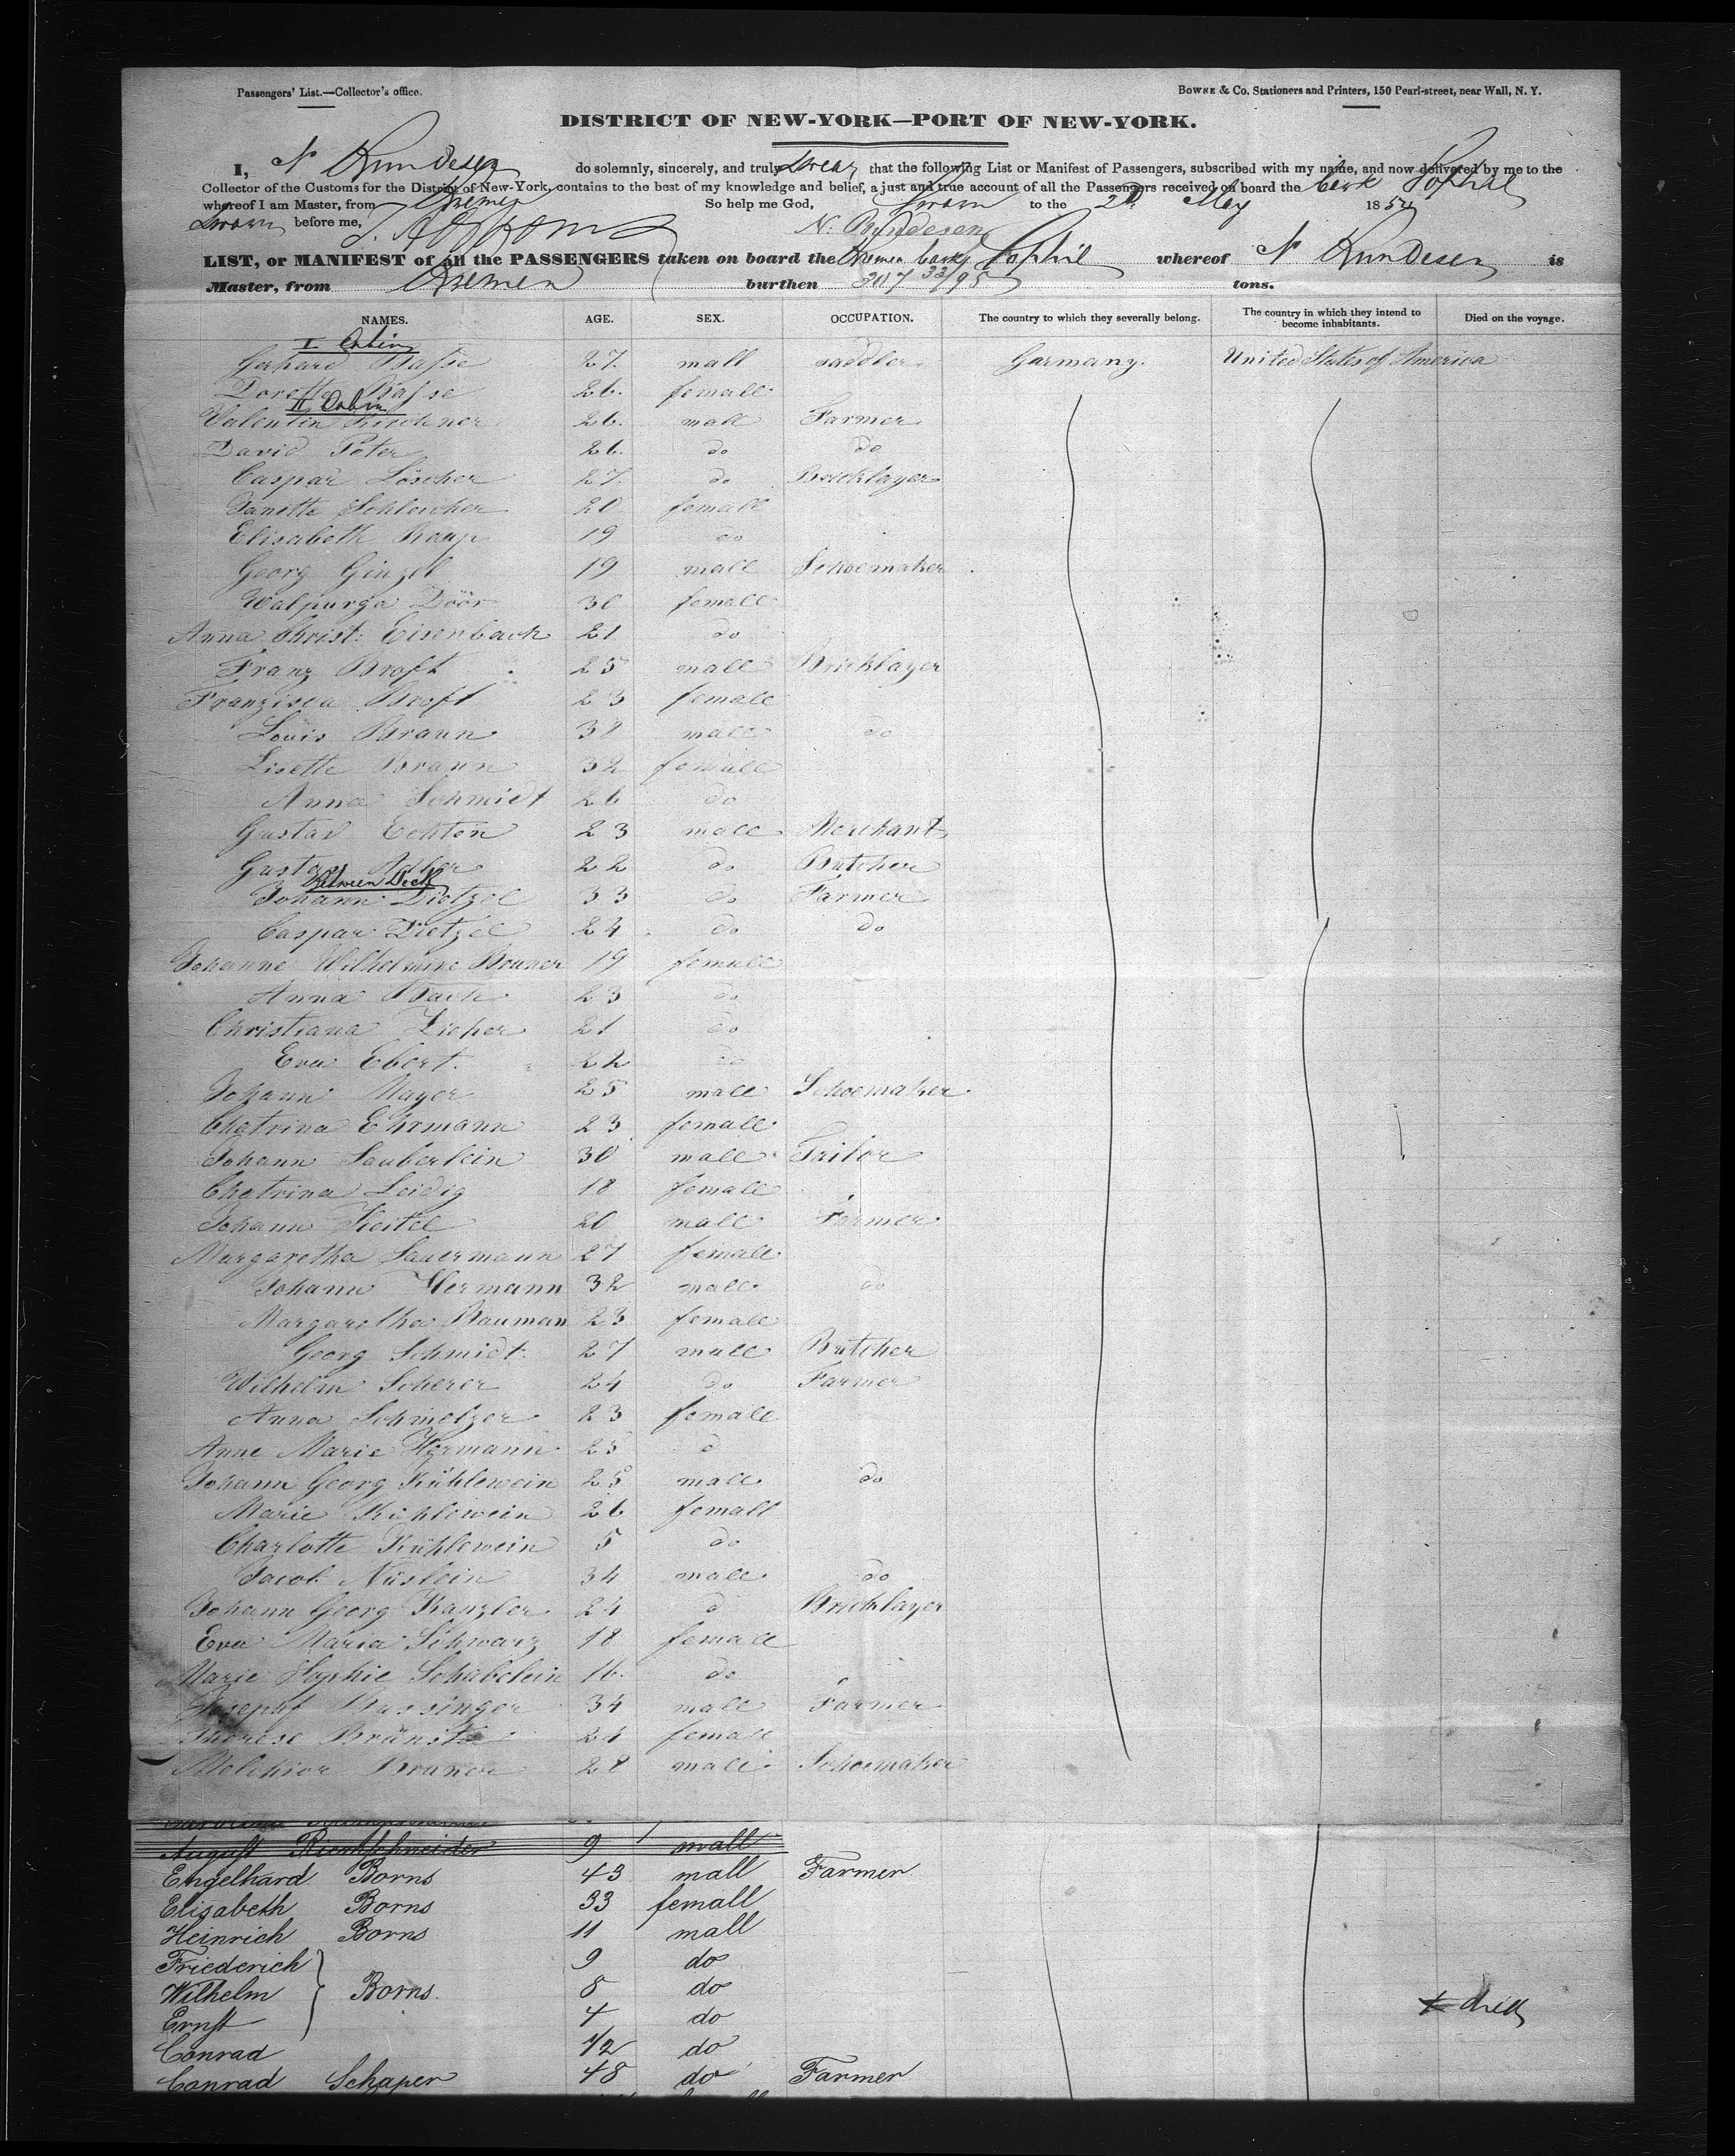 Passengers' List.—Collector's office.
BOWNE & Co. Stationers and Printers, 150 Pearl-street, near Wall, N. Y.
DISTRICT OF NEW-YORK—PORT OF NEW-YORK.
I, N Rundesen do solemnly, sincerely, and truly Swear that the following List or Manifest of Passengers, subscribed with my name, and now delivered by me to the
Collector of the Customs for the District of New-York, contains to the best of my knowledge and belief, a just and true account of all the Passengers received on board the bark Sophie
whereof I am Master, from Bremen So help me God, Sworn to the 2d May 185
Sworn before me, N. Rundesen
LIST, or MANIFEST of all the PASSENGERS taken on board the Bremen bark Sophie whereof N Rundesen is
Master, from Bremen burthen 307 33/95 tons.
NAMES. AGE. SEX. OCCUPATION. The country to which they severally belong. The country in which they intend to become inhabitants. Died on the voyage.
I Cabin
Gerhard Basse 27. mall saddler Garmany. United States of America
Dorette Basse 26. female
II Cabin
Valentin Kirchner 26. male Farmer
David Peter 26. do do
Caspar Löscher 27. do Bricklayer
Janette Schleicher 20 female
Elisabeth Raup 19 do
Georg Ginzel 19 male Schoemaker
Walpurga Döör 30 female
Anna Christ: Eisenbach 21 do
Franz Broft 25 male Bricklayer
Franzisca Broft 23 female
Louis Braun 38 male do
Lisette Braun 32 female
Anna Schmidt 26 do
Gustav Echten 23 male Merchant
Gustav 22 do Butcher
Between Deck
Johann Dietzel 33 do Farmer
Caspar Dietzel 24 do do
Johanne Wilhelmine Bruner 19 female
Anna Bach 23 do
Christiana Lieher 21 do
Eva Ebert. 22 do
Johann Mayer 25 male Schoemaker
Chatrina Ehrmann 23 female
Johann Sauberlein 30 male Tailor
Chatrina Leidig 18 female
Johann Keitel 20 male Farmer
Margaretha Sauermann 27 female
Johann Hermann 32 male do
Margaretha Bauman 23 female
Georg Schmidt 27 male Butcher
Wilhelm Scherer 24 do Farmer
Anna Schmelzer 23 female
Anne Marie Hermann 25 d
Johann Georg Kühlewein 25 male do
Marie Kühlewein 26 female
Charlotte Kühlewein 5 do
Jacob Nüslein 34 male do
Johann Georg Kanzler 24 d Bricklayer
Eva Maria Schwarz 18 female
Marie Sophie Schabelein 16. do
Josephf Bussinger 34 male Farmer
Therese 24 female
Melchior Bruner 28 male Schoemaker
August Riemschneider 9 mall
Engelhard Borns 43 mall Farmer
Elisabeth Borns 33 femall
Heinrich Borns 11 mall
Friederich 9 do
Wilhelm } Borns. 8 do
Ernst 4 do
Conrad 1/2 do
Conrad Schaper 48 do Farmer